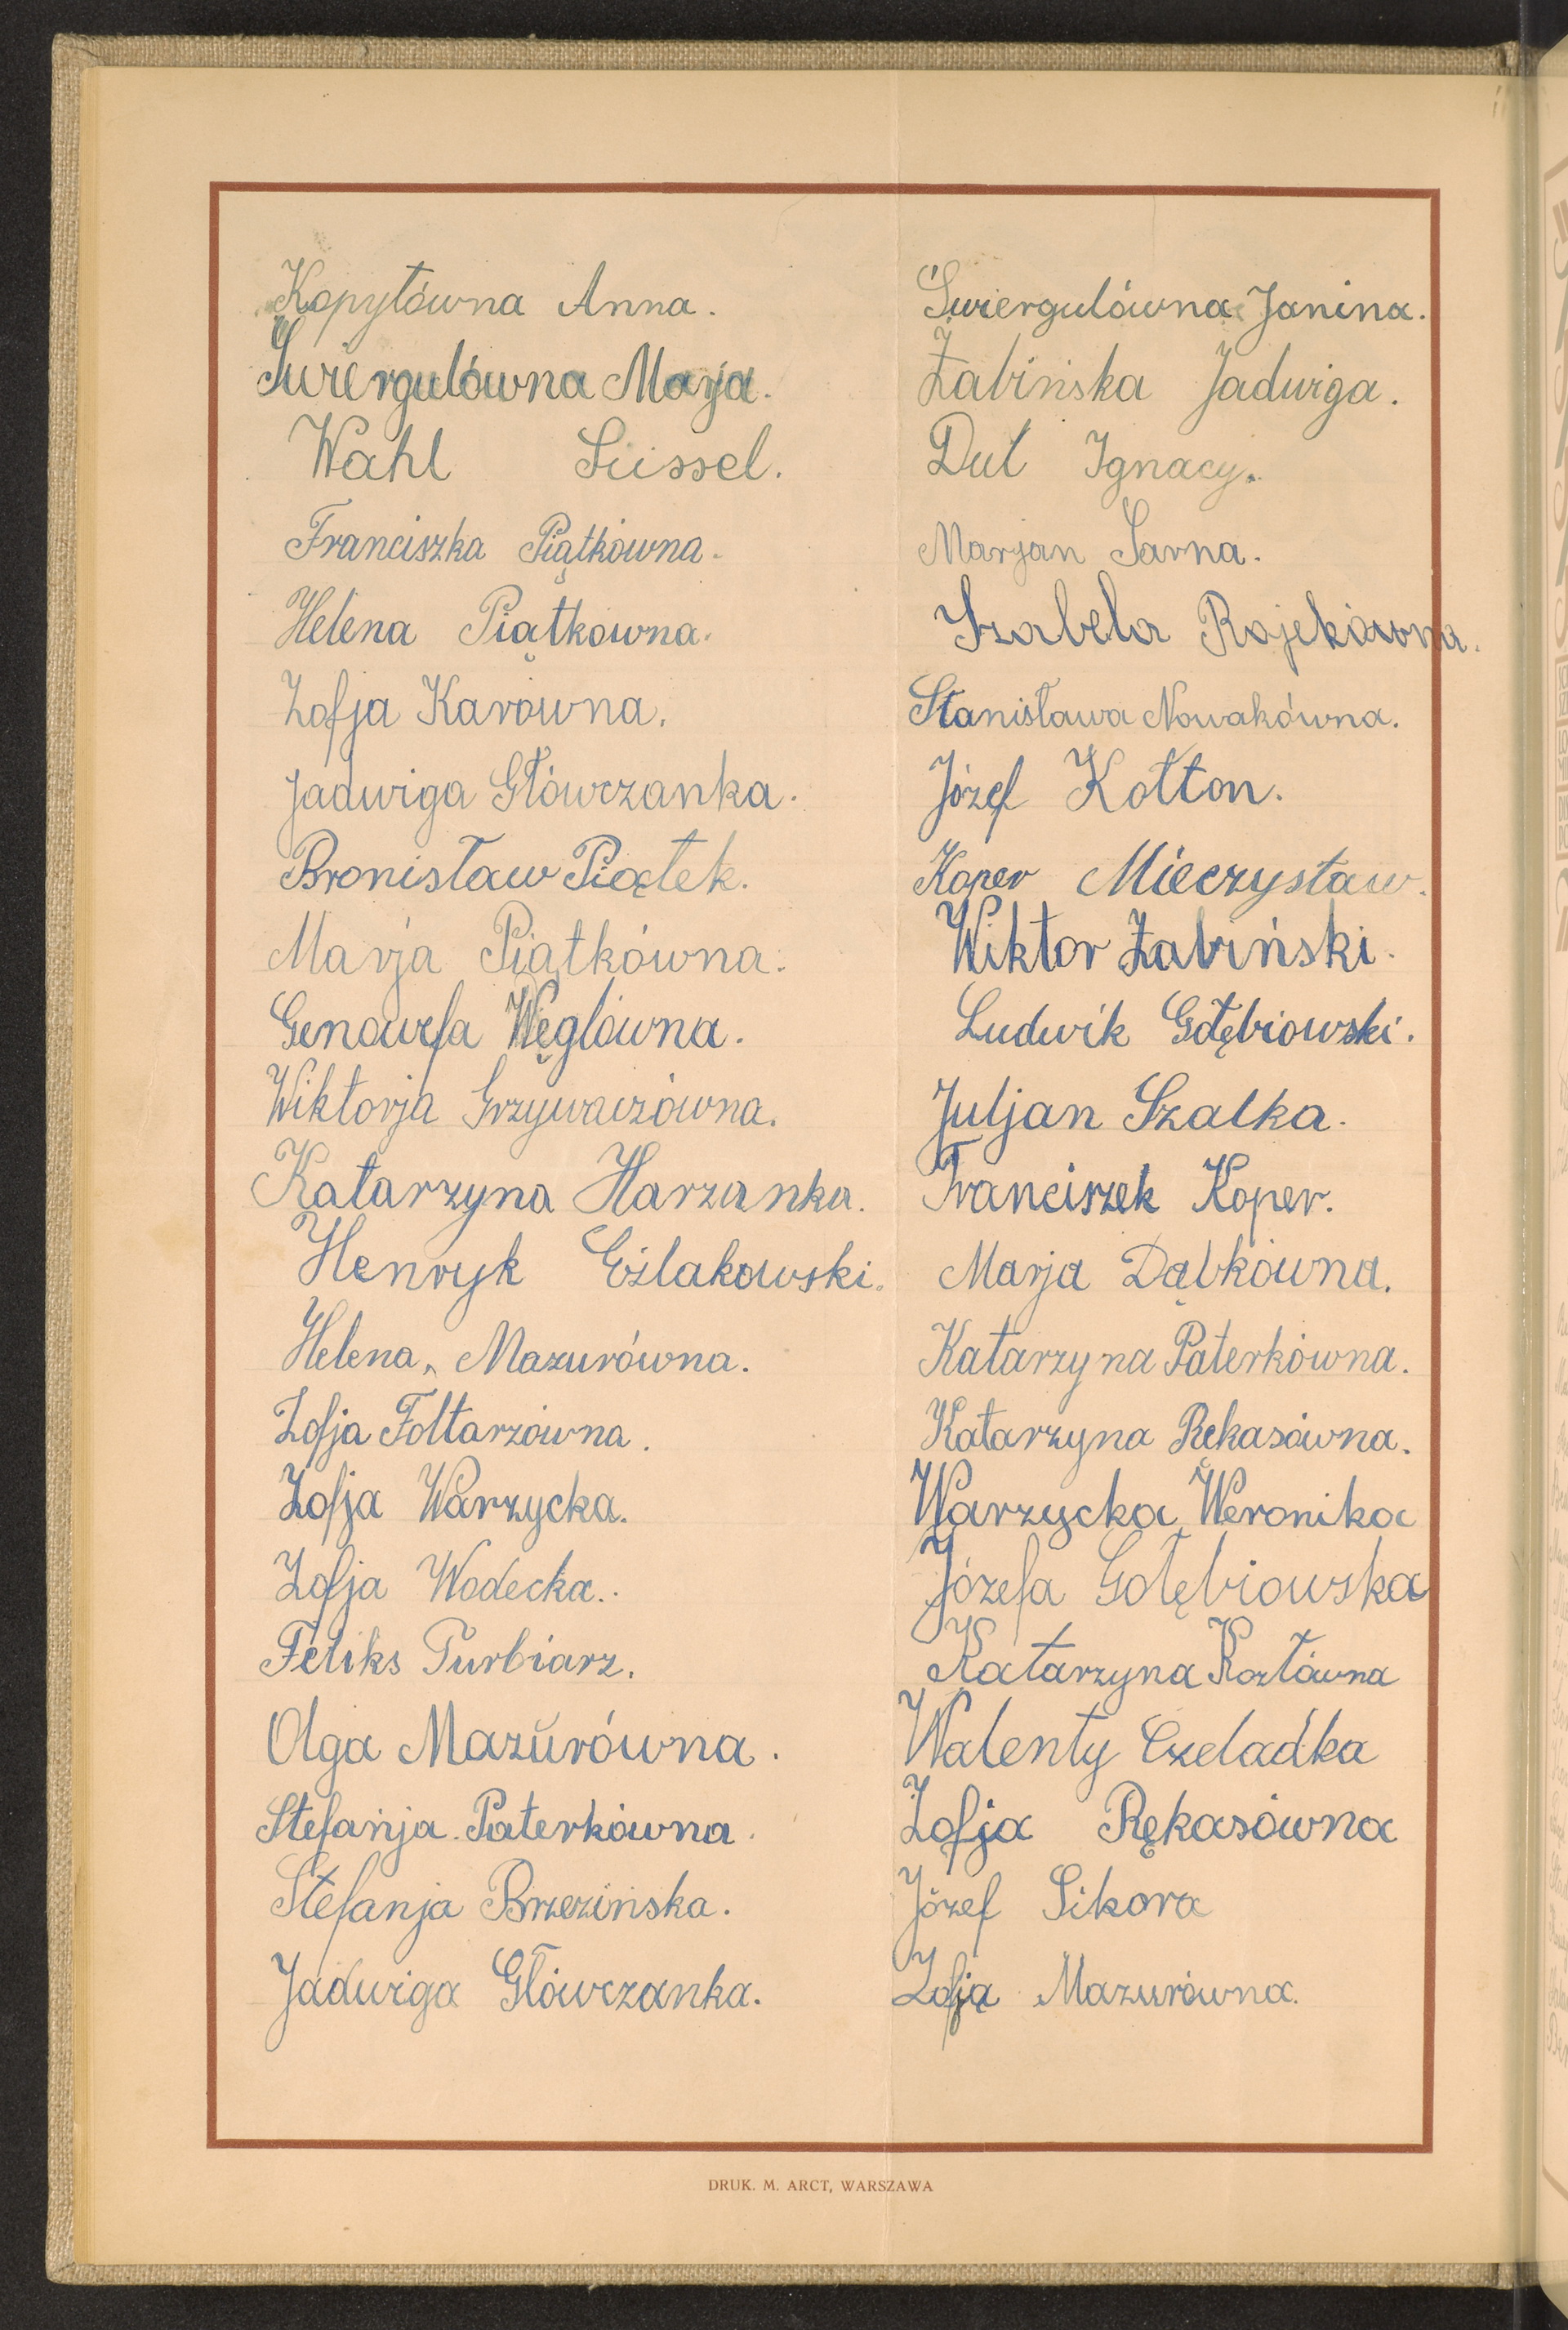 Kopytówna Anna.
Świergulówna Marja.
Wahl Süssel.
Franciszka Piątkówna.
Helena Piątkowna.
Zofja Karówna.
Jadwiga Główczanka.
Bronisław Piątek.
Marja Piątkówna.
Genowefa Węglówna.
Wiktorja Grzywaczówna.
Katarzyna Harzanka.
Henryk Giżlakowski.
Helena Mazurówna.
Zofja Foltarzówna.
Zofja Warzycka.
Zofja Wodecka.
Feliks Turbiarz.
Olga Mazurówna.
Stefanja Paterkówna.
Stefanja Brzezińska.
Jadwiga Główczanka.
Świergulówna Janina.
Żabińska Jadwiga.
Dul Ignacy.
Marjan Sarna.
Izabela Rojekówna.
Stanisława Nowakówna.
Józef Kołton.
Koper Mieczysław.
Wiktor Żabiński.
Ludwik Gołębiowski.
Juljan Szalka.
Franciszek Koper.
Marja Dąbkówna.
Katarzyna Paterkówna.
Katarzyna Rękasówna.
Warzycka Weronika
Józefa Gołębiowska
Katarzyna Kozłówna
Walenty Czeladka
Zofja Rękasówna
Józef Sikora
Zofja Mazurówna.
DRUK. M. ARCT, WARSZAWA